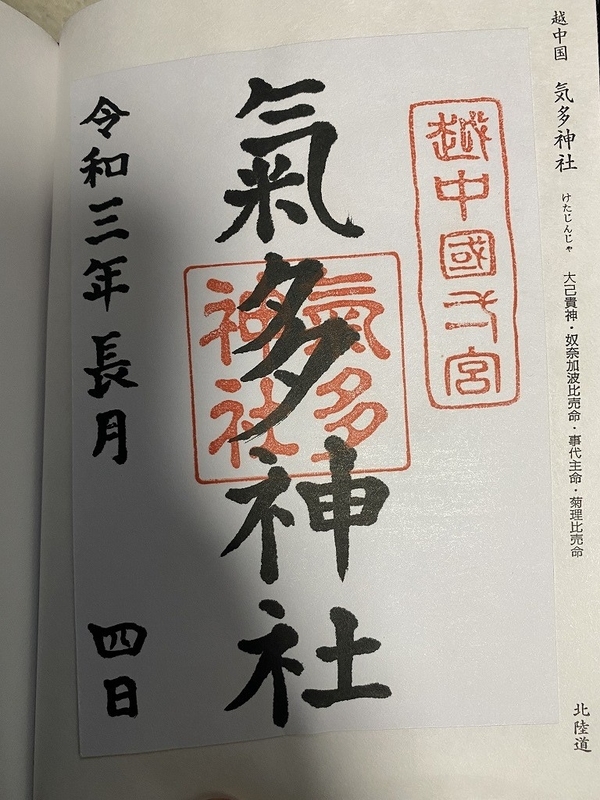 越中国 気多神社 けたじんじゃ 大己貴神・奴奈加波比売命・事代主命・菊理比売命 北陸道
越中國弌宮
氣多神社
氣多
神社
令和三年長月 四日